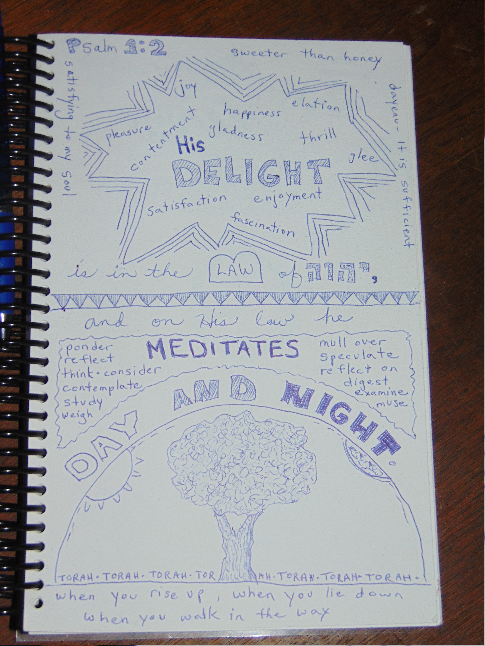 Psalm 1:2
sweeter than honey
satisfying to my soul
dayenu - it is sufficient
joy
happiness
elation
pleasure
contentment
gladness
thrill
glee
His
DELIGHT
satisfaction
enjoyment
fascination
is in the LAW of יהוה,
and on His law he
MEDITATES
ponder
reflect
think • consider
contemplate
study
weigh
mull over
speculate
reflect on
digest
examine
muse
DAY AND NIGHT.
TORAH • TORAH • TORAH • TOR AH • TORAH • TORAH • TORAH •
when you rise up, when you lie down
when you walk in the way